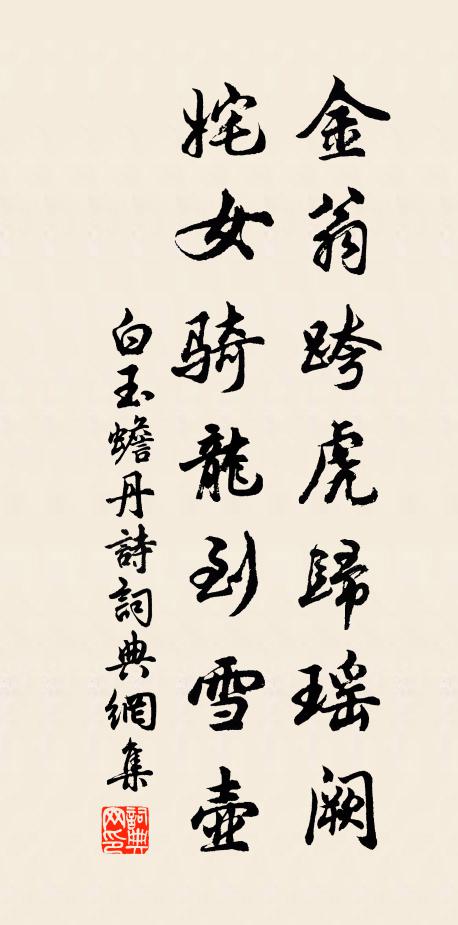 金翁跨虎歸瑶闕
姹女騎龍到雪壺
白玉蟾丹詩詞典網集
詞典網印